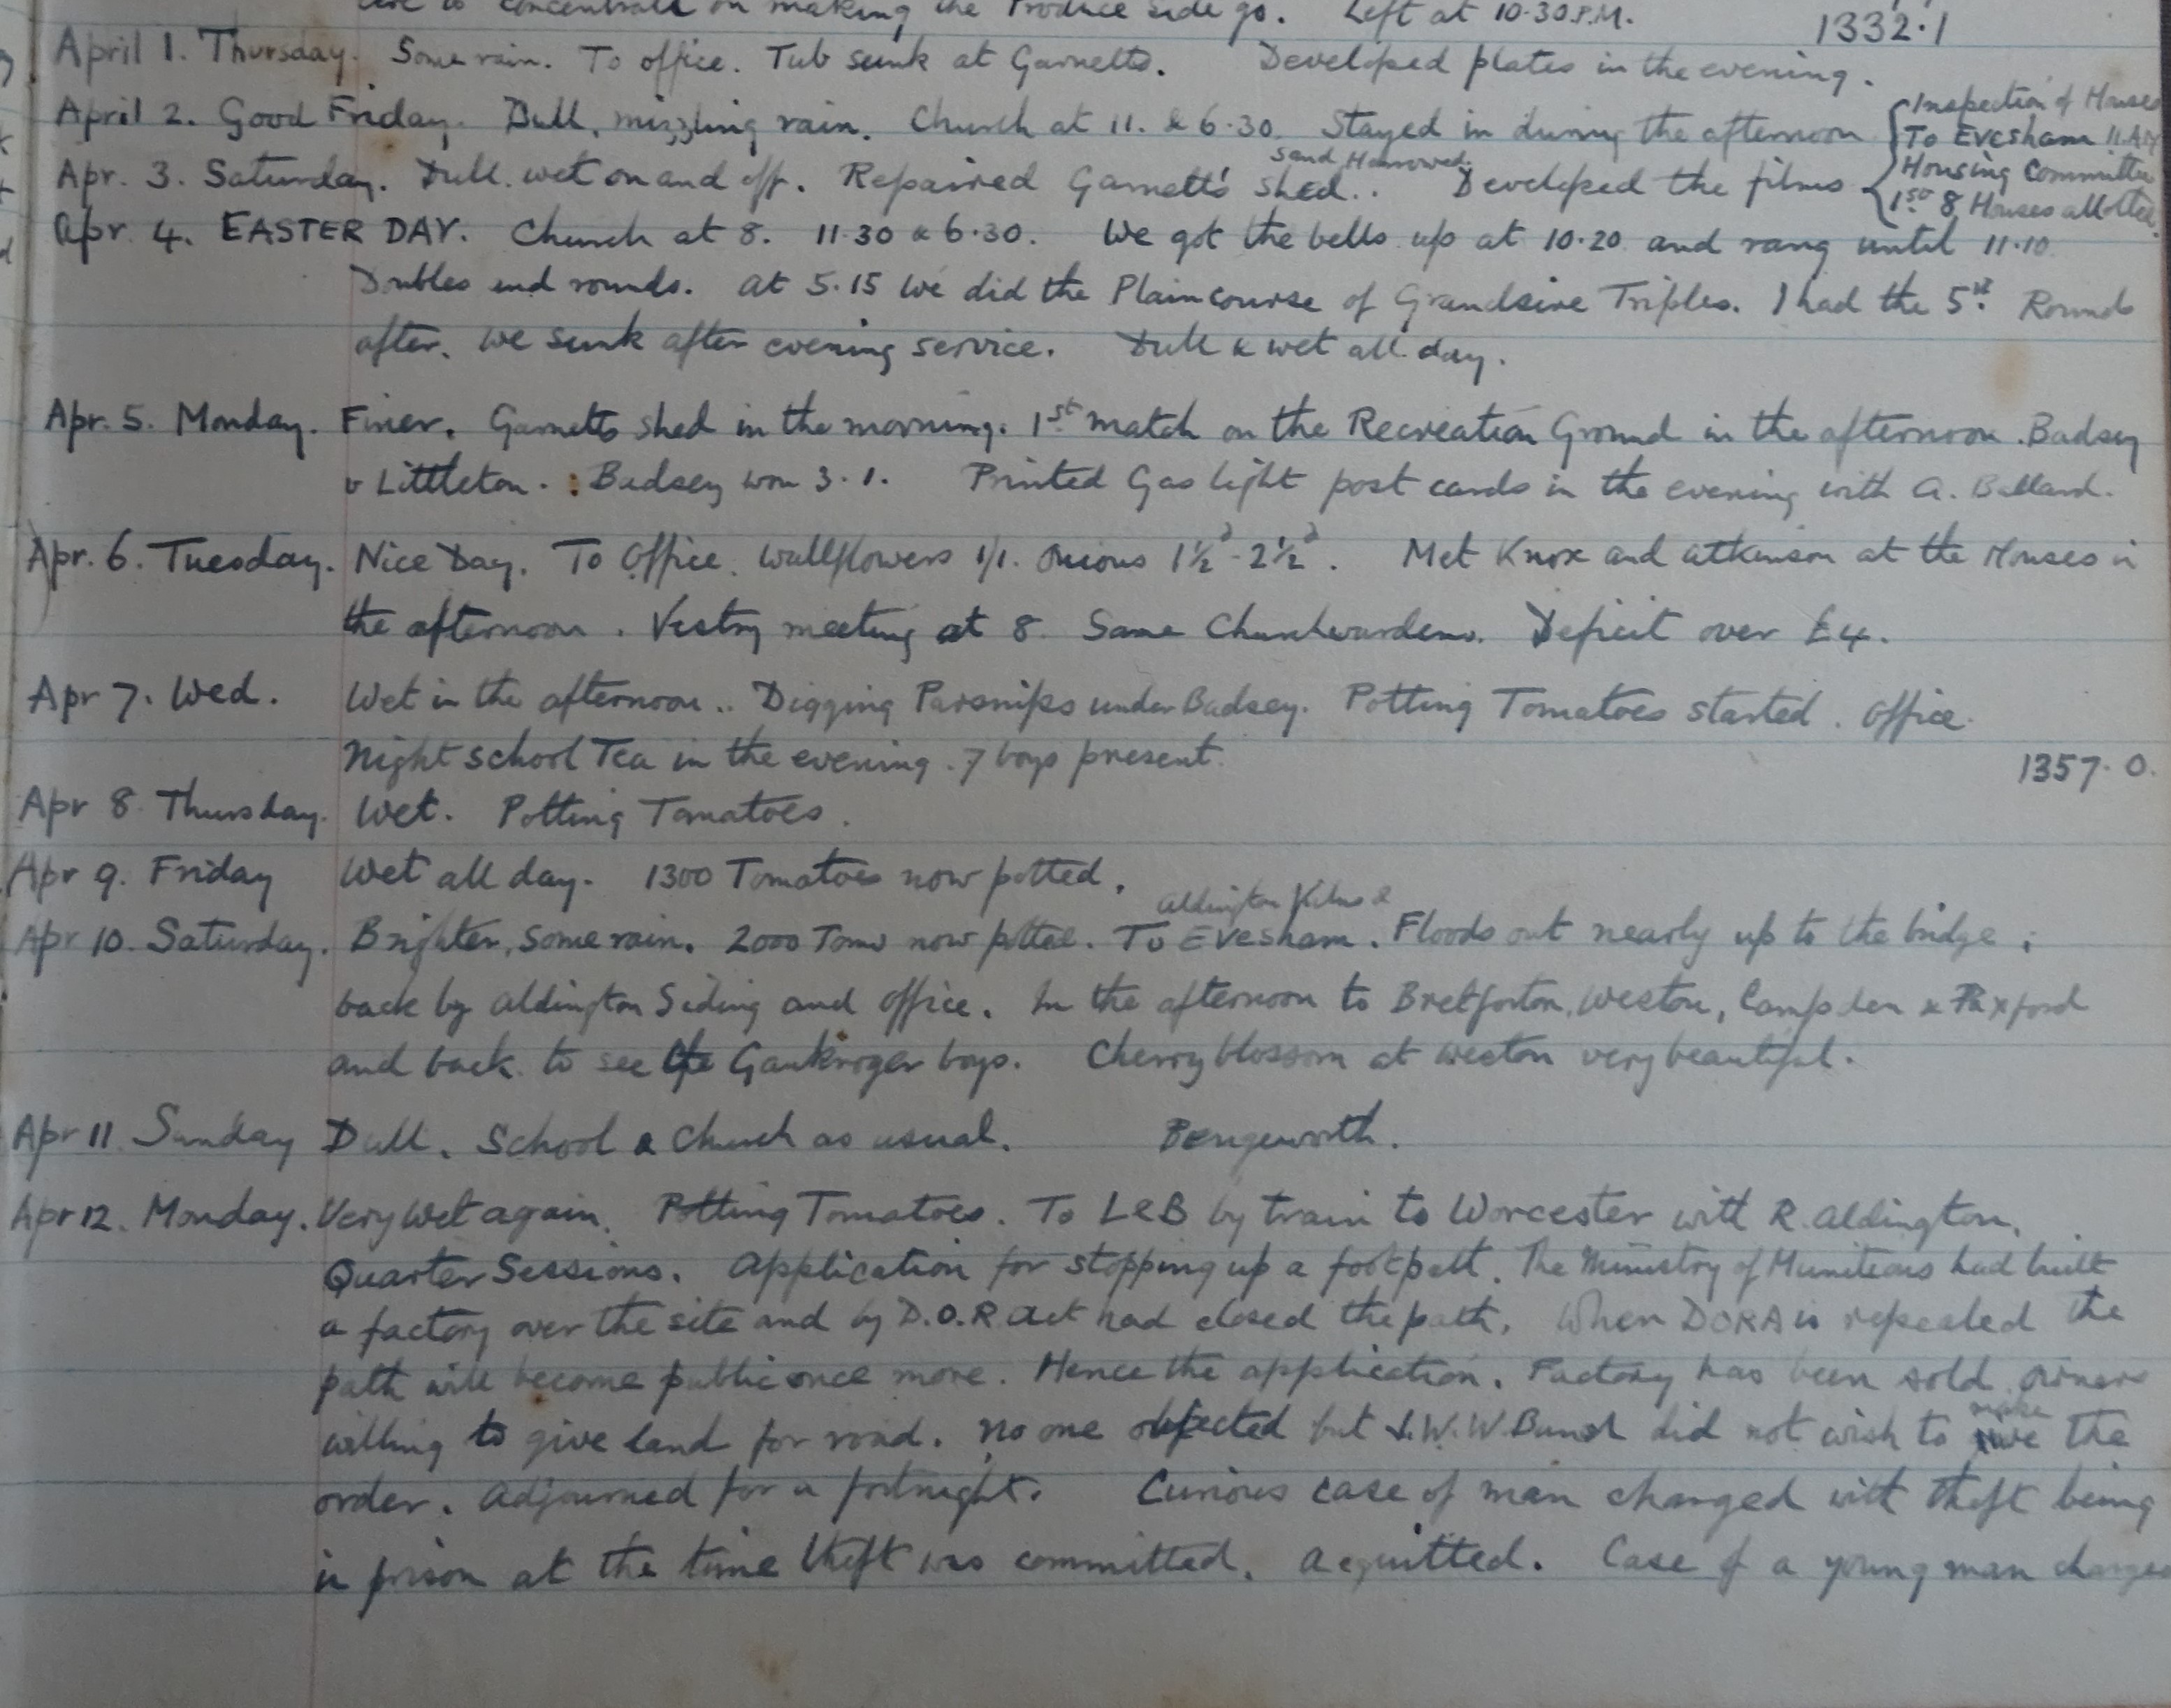 to concentrate on making the Produce side go. Left at 10.30 P.M.
1332.1
April 1. Thursday. Some rain. To office. Tub sunk at Garnetts. Developed plates in the evening.
April 2. Good Friday. Dull, mizzling rain. Church at 11. & 6.30. Stayed in during the afternoon
Inspection of Houses
To Evesham 11.AM
Apr. 3. Saturday. Dull. wet on and off. Repaired Garnett's shed.. Developed the films
sand Harrowed.
Housing Committee
1st 8 Houses allotted.
Apr. 4. EASTER DAY. Church at 8. 11.30 & 6.30. We got the bells up at 10.20 and rang until 11.10
Doubles and rounds. At 5.15 we did the Plain course of Grandsire Triples. I had the 5st. Rounds
after. We sunk after evening service. Dull & wet all day.
Apr. 5. Monday. Finer. Garnetts shed in the morning. 1st match on the Recreation Ground in the afternoon. Badsey
v Littleton. : Badsey won 3.1. Printed Gas light post cards in the evening with A. Ballard.
Apr. 6. Tuesday. Nice Day. To Office. Wallflowers 1/1. Onions 1½d-2½d. Met Knox and Atkinson at the Houses in
the afternoon. Vestry meeting at 8. Same Churchwardens. Deficit over £4.
Apr 7. Wed. Wet in the afternoon.. Digging Parsnips under Badsey. Potting Tomatoes started. Office.
Night school Tea in the evening. 7 boys present.
1357.0.
Apr 8. Thursday. Wet. Potting Tomatoes.
Apr 9. Friday Wet all day. 1300 Tomatoes now potted.
Aldington Kilns &
Apr 10. Saturday. Brighter, some rain. 2000 Toms now potted. To Evesham. Floods out nearly up to the bridge;
back by Aldington Siding and office. In the afternoon to Bretforton, Weston, Campden & Paxford
and back to see the Gaukroger boys. Cherry blossom at Weston very beautiful.
Apr 11. Sunday Dull. School & Church as usual. Bengeworth.
Apr 12. Monday. Very Wet again. Potting Tomatoes. To L&B by train to Worcester with R. Aldington.
Quarter Sessions. Application for stopping up a footpath. The Ministry of Munitions had built
a factory over the site and by D.O.R. Act had closed the path. When DORA is repealed the
path will become public once more. Hence the application. Factory has been sold. Owners
willing to give land for road. No one objected but J.W.W. Bund did not wish to make the
order. Adjourned for a fortnight. Curious case of man charged with theft being
in prison at the time theft was committed. Acquitted. Case of a young man charged